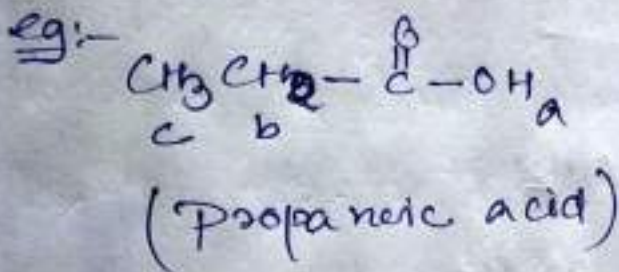 eg:-
O
CH3 CH2 - C - OH a
c b
(Propanoic acid)